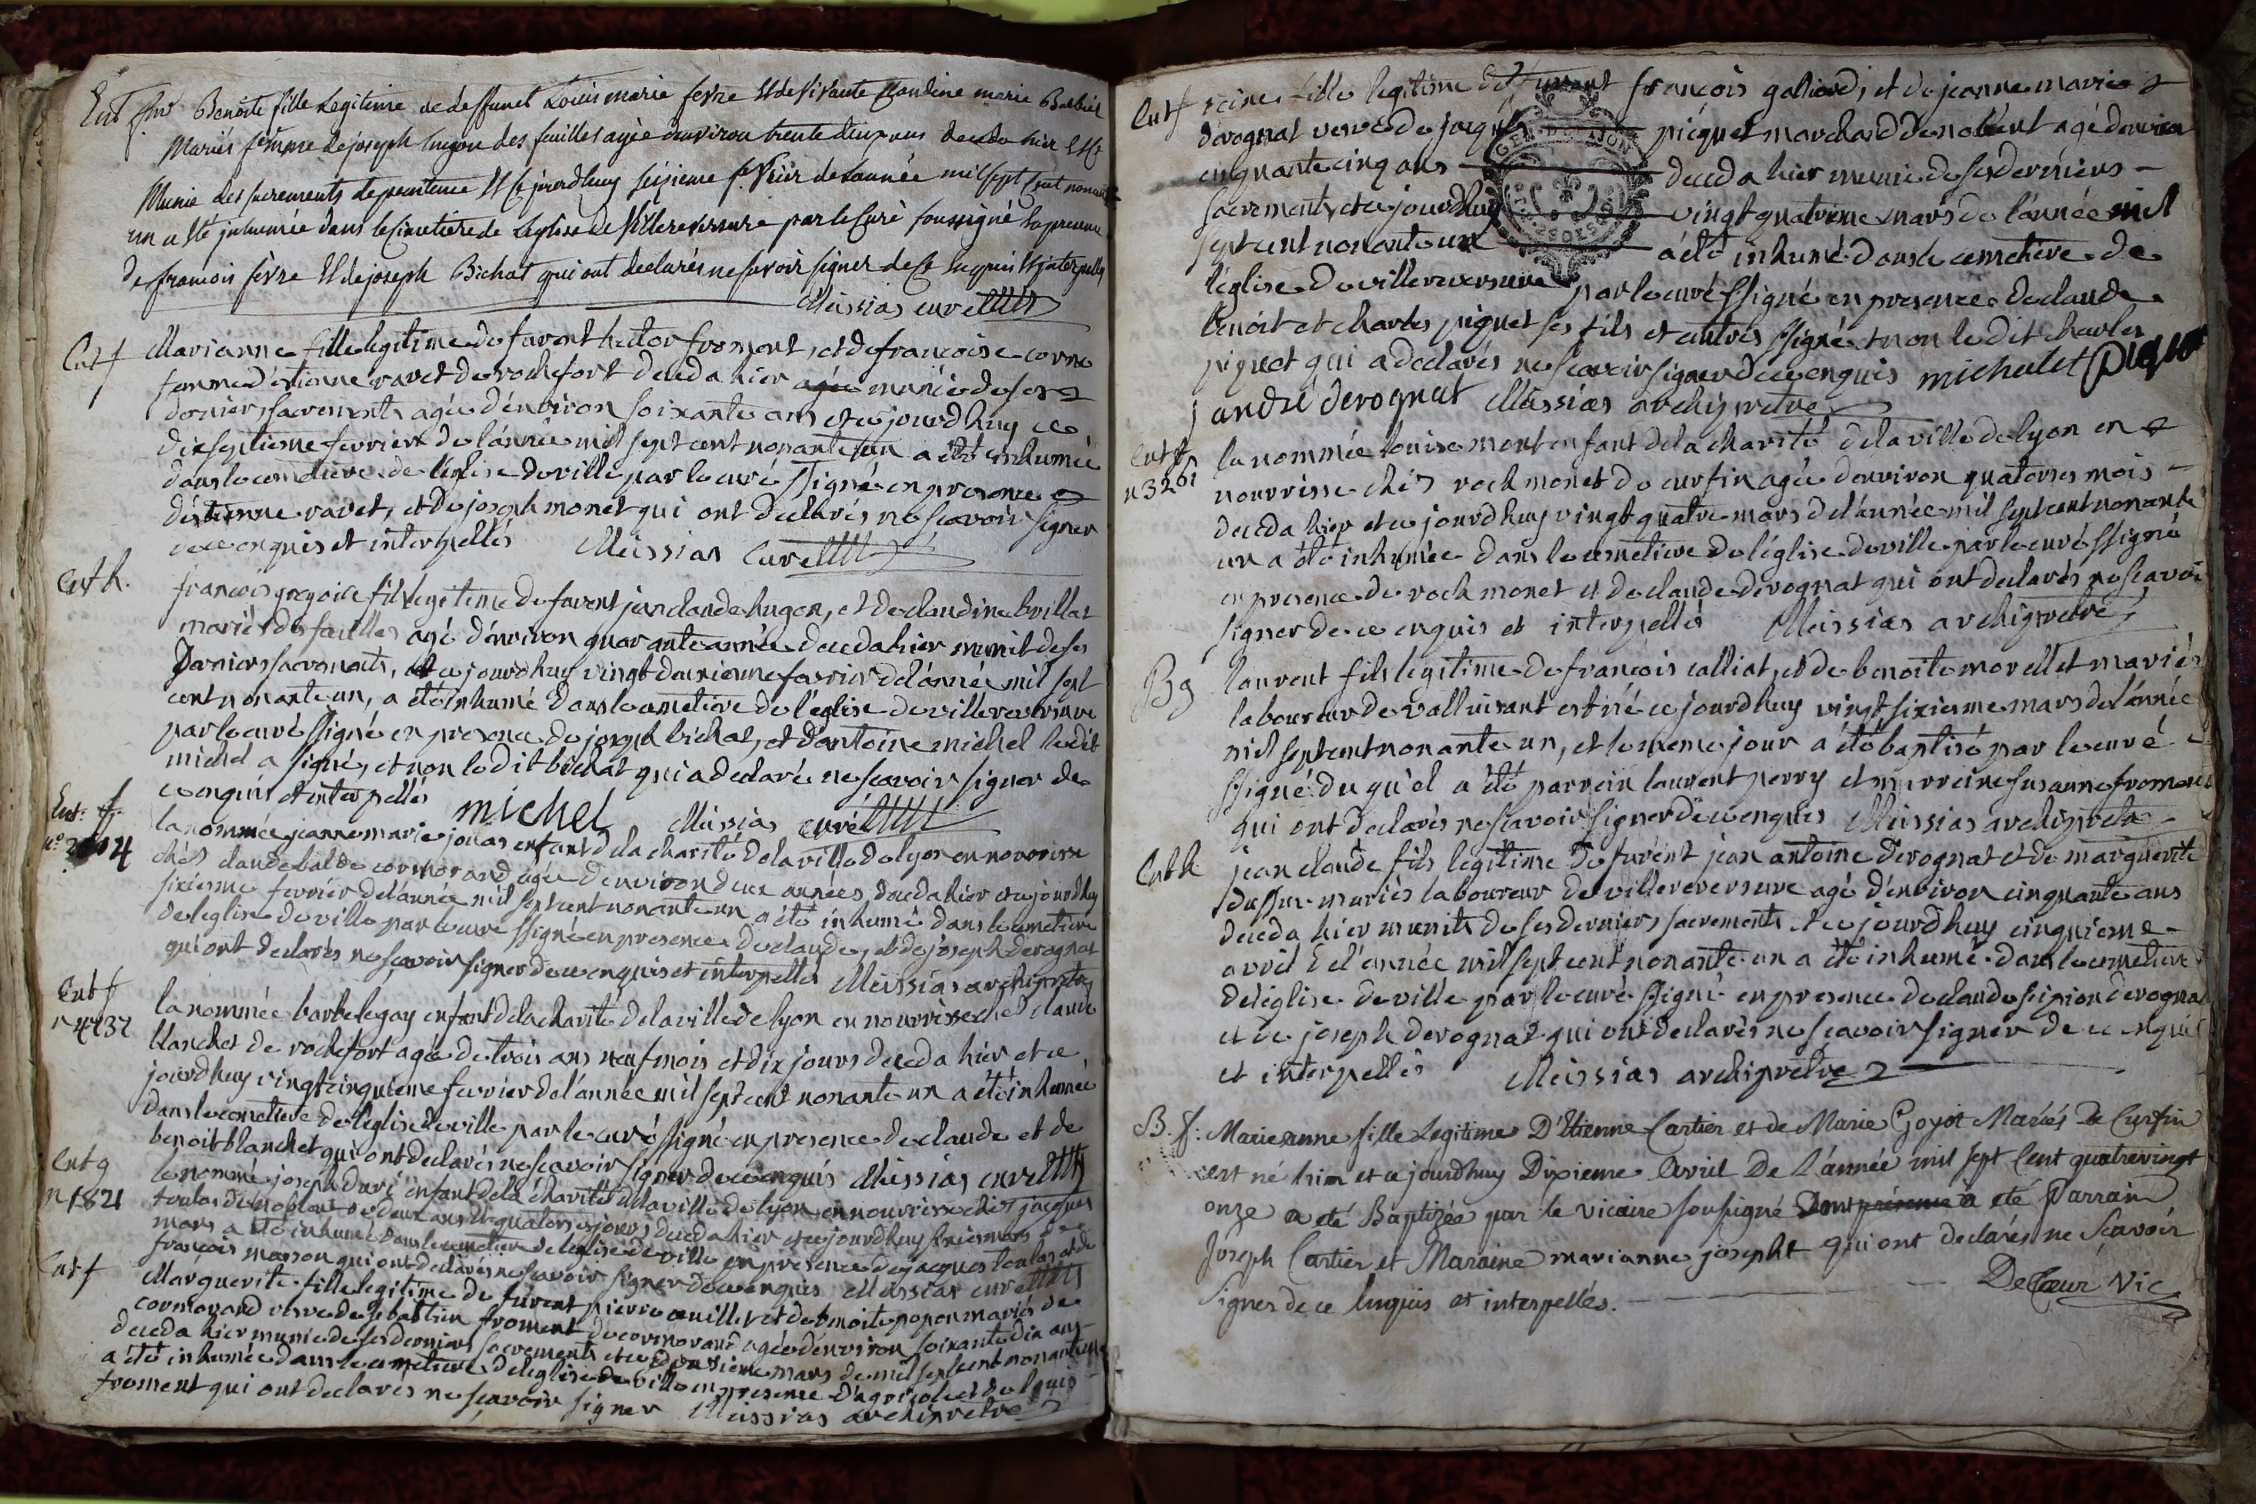 Ent fme Benoite fille Legitime de deffunct Louis marie fevre Et de vivante Claudine marie Barbier
Mariés femme de joseph hugon des feuilles agée d'environ trente deux ans deceda hier Et
Munie des sacrements de penitence Et ce jourdhuy seizieme fevrier de l'année mil sept cent nonante
un a eté inhumée dans le Cimetiere de L'eglise de Villereversure par le Curé soussigné En presence
de francois fevre Et de joseph Bichat qui ont declarés ne scavoir signer de ce Enquis Et interpellés
Messias curé
Ent f Marianne fille legitime de furent hector froment, et de francoise corne
femme d'estienne ravet de rochefort deceda hier agée munie de ses
derniers sacrements agée d'environ soixante ans et ce jourdhuy
dix septieme fevrier de l'année mil sept cent nonante un a été inhumée
dans le cemetiere de l'eglise de ville par le curé ssigné en presence
d'estienne ravet, et de joseph monet qui ont declarés ne scavoir signer
de ce enquis et interpellés Messias Curé
Ent h. francois gregoire fils legitime de furent jean claude hugon, et de claudine brillat
mariés des feuilles agé d'environ quarante année deceda hier munit de ses
Derniers sacrements, et ce jourdhuy vingt deuxieme fevrier de l'année mil sept
cent nonante un, a été inhumé dans le cemetiere de l'eglise de villereversure
par le curé ssigné en presence de joseph bichat, et d'antoine michel ledit
michel a signé, et non le dit bichat qui a declaré ne scavoir signer de
ce enquis et interpellés michel Messias curé
Ent: f. la nommée jeanne marie jonas enfant de la charité de la ville de lyon en nourrisse
chés claude bal de cormorand agée d'environ deux années, deceda hier et ce jourdhuy
sixiesme fevrier de l'année mil sept cent nonante un a été inhumé dans le cemetiere
de l'eglise de ville par le curé ssigné en presence de claude, et de joseph derognat
qui ont declarés ne scavoir signer de ce enquis et interpellés Messias archipretre
Ent f la nommée barbe legay enfant de la charité de la ville de lyon en nourrisse chés claude
n 4737 blanchet de rochefort agée de trois ans neuf mois et dix jours deceda hier et ce
jourdhuy vingt cinquieme fevrier de l'année mil sept cent nonante un a été inhumée
dans le cemetiere de l'eglise de ville par le curé ssigné en presence de claude et de
benoit blanchet qui ont declarés ne scavoir signer de ce enquis Messias curé
Ent g le nommé joseph duré enfant de la charité de la ville de lyon en nourrisse chés jacques
n 1821 toulas de noblent de deux ans et quatorse jours deceda hier et ce jourdhuy
mars a été inhumé dans le cemetiere de l'eglise de ville en presence de jacques toulas et de
francois masson qui ont declarés ne scavoir signer de ce enquis Messias curé
Ent f Marguerite fille legitime de furent pierre et de benoite popon mariés de
cormorand veuve de sebastien froment de cormorand agée d'environ soixante dix ans
deceda hier munie de ses derniers sacrements et ce deuxieme mars de mil sept cent nonante un
a été inhumée dans le cemetiere de l'eglise de ville en presence d'agricole et de louis
froment qui ont declarés ne scavoir signer Messias archiprêtre
Ent f reine fille legitime de furent françois galliard, et de jeanne marie
derognat veuve de jacques piquet marchand de noblent agé d'environ
cinquante cinq ans deceda hier munie de ses derniers
sacrements et ce jourdhuy vingt quatrieme mars de l'année mil
sept cent nonante un a été inhumé dans le cemetiere de
l'église de villereversure par le curé ssigné en presence de claude
benoit et charles piquet ses fils et autres ssigné et non le dit charles
piquet qui a declarés ne scavoir signer de ce enquis michulet Piquet
andré derognat Messias archiprêtre
Ent f la nommée louise mont enfant de la charité de la ville de lyon en
n 3261 nourrisse chés roch monet de curfin agée d'environ quatorses mois
deceda hier et ce jourdhuy vingt quatre mars de l'année mil sept cent nonante
un a été inhumée dans le cemetiere de l'église de ville par le curé ssigné
en presence de roch monet et de claude derognat qui ont declarés ne scavoir
signer de ce enquis et interpellés Messias archiprêtré
B g laurent fils legitime de françois calliat, et de benoite morellet mariés
laboureur de valluisant est né ce jourdhuy vingt sixiesme mars de l'année
mil sept cent nonante un, et le meme jour a été baptisé par le curé
ssigné du qu'el a été parrain laurent perry et marraine susanne froment
qui ont declarés ne scavoir signer de ce enquis Messias archiprêtre
Ent h jean claude fils legitime de furent jean antoine derognat et de marguerite
dufour mariés laboureur de villereversure agé d'environ cinquante ans
deceda hier munit de ses derniers sacrements et ce jourdhuy cinquieme
avril de l'année mil sept cent nonante un a été inhumé dans le cemetiere
de l'église de ville par le curé ssigné en presence de claude scipion derognat
et de joseph derognat qui ont declarés ne scavoir signer de ce enquis
et interpellés Messias archiprêtre
B. f: Marieanne fille Legitime D'Etienne Cartier et de Marie Goyot Mariés De Curfin
est né hier et ce jourdhuy Dixieme Avril De L'année mil sept Cent quatrevingt
onze a été Baptisée par le vicaire soussigné Dont presence a eté Parrain
Joseph Cartier et Maraine marianne josepht qui ont declarés ne Scavoir
Signer de ce Enquis et interpellés.
DeCœur Vic